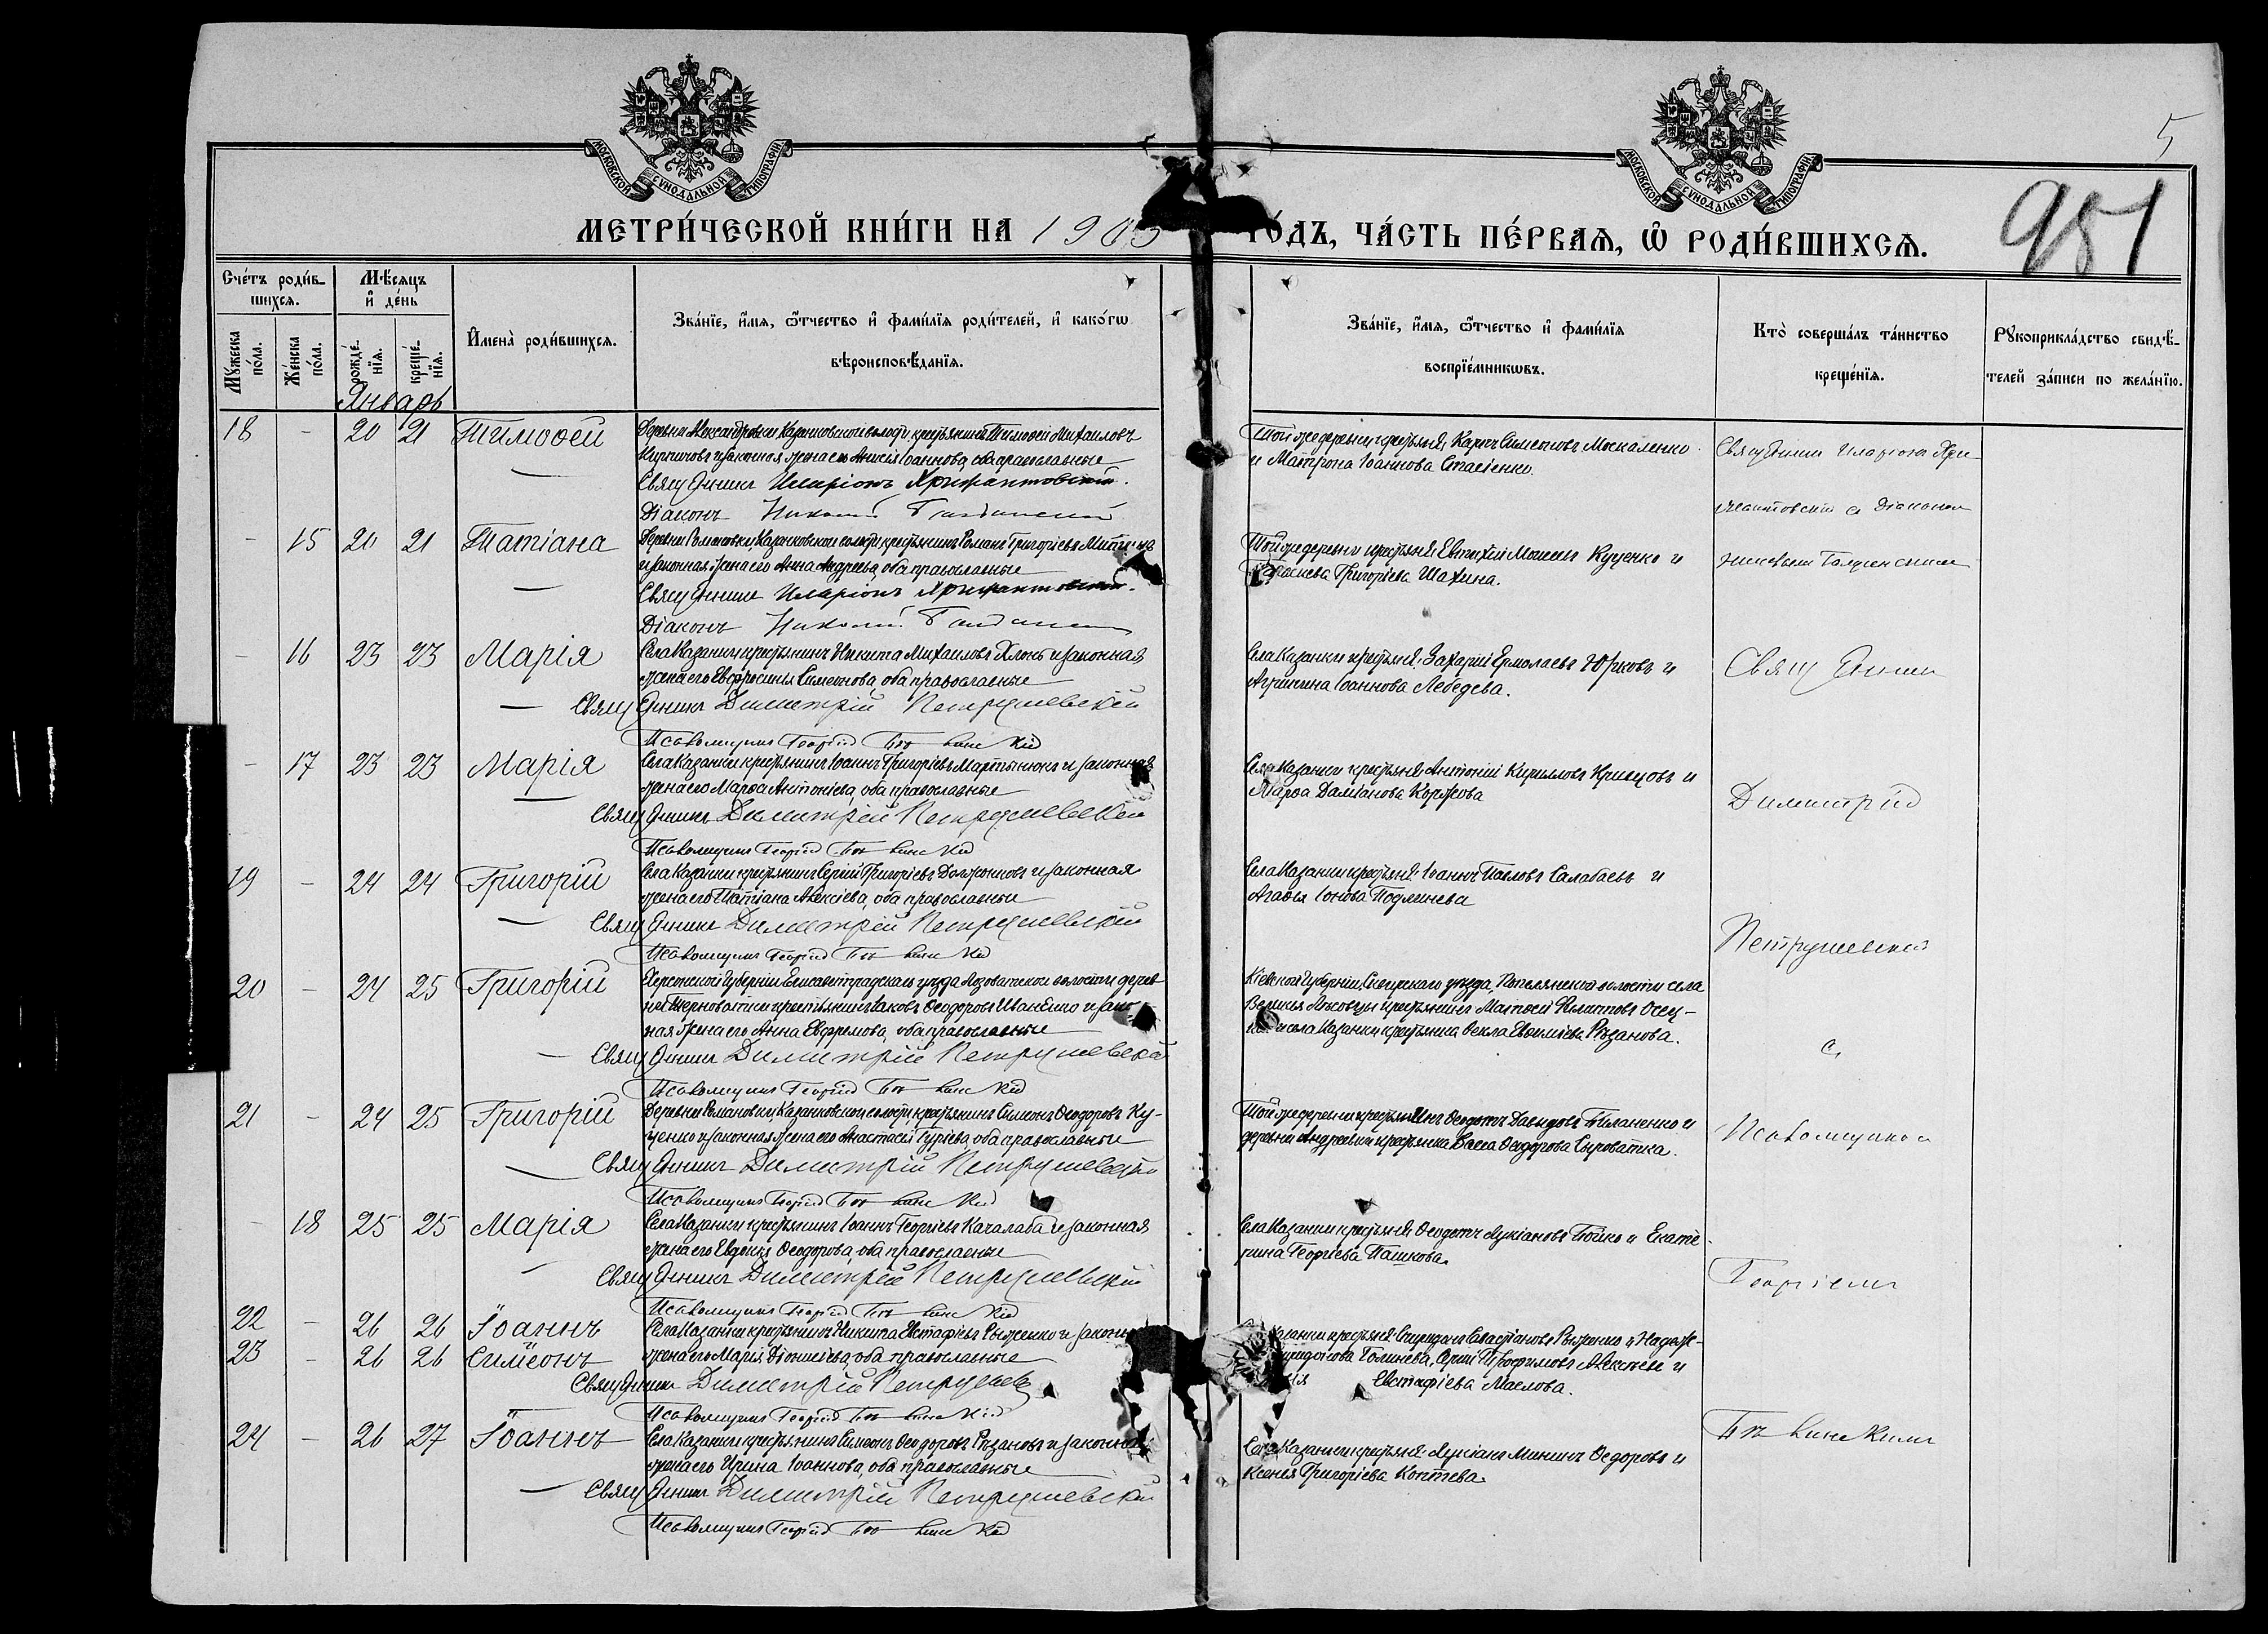 МОСКОВСКОЙ СУНОДАЛЬНОЙ ТИПОГРАФІИ
МОСКОВСКОЙ СУНОДАЛЬНОЙ ТИПОГРАФІИ
5
981
МЕТРИ́ЧЕСКОЙ КНИ́ГИ НА 1903 ГО́ДЪ, ЧА́СТЬ ПЕ́РВАѦ, Ѡ҆ РОДИ́ВШИХСѦ.
Сче́тъ роди́в-
шихсѧ.
Мѣ́сѧцъ
и҆ де́нь
Мꙋ́жеска по́ла.
Же́нска по́ла.
рожде́-нїѧ.
креще́-нїѧ.
И҆мена̀ роди́вшихсѧ.
Зва́нїе, и҆́мѧ, ѻ҆́тчество и҆ фами́лїѧ роди́телей, и҆ како́гѡ
вѣроисповѣ́данїѧ.
Зва́нїе, и҆́мѧ, ѻ҆́тчество и҆ фами́лїѧ
воспрїе́мникѡвъ.
Кто̀ соверша́лъ та́инство
креще́нїѧ.
Рꙋкоприкла́дство свидѣ́-
телей за́писи по жела́нїю.
Январь
18 - 20 21 Тимоѳей
Деревни Александровки Казанковской волости крестьянинъ Тимоѳей Михаиловъ
и законная жена его Анисія Іоаннова, оба православные
Священникъ Иларіонъ Хрисантовскій.
Діаконъ Николай
Той же деревни крестьян. Карпъ Симеоновъ Москаленко
и Матрона Іоаннова Стасіенко.
Священникъ Иларіонъ Хри-
сантовскій съ Діакономъ
- 15 20 21 Татіана
Деревни Романовки, Казанковской волости крестьянинъ Романъ Григоріевъ
и законная жена его Анна Андреева, оба православные
Священникъ Иларіонъ Хрисантовскій.
Діаконъ Николай
Той же деревни крестьян. Евтихій Моисеевъ Куценко и
Параскева Григоріева Шахина.
- 16 23 23 Марія
Села Казанки крестьянинъ Никита Михаиловъ и законная
жена его Евфросинія Симеонова, оба православные
Священникъ Димитрій Петрушевскій
Псаломщикъ Георгій
Села Казанки крестьян. Захарій Ермолаевъ Юрковъ и
Агрипина Іоаннова Лебедева.
Священникъ
- 17 23 23 Марія
Села Казанки крестьянинъ Іоаннъ Григоріевъ Мартынюкъ и законная
жена его Марѳа Антоніева, оба православные
Священникъ Димитрій Петрушевскій
Псаломщикъ Георгій
Села Казанки крестьян. Антоній Кирилловъ Кривцовъ и
Марѳа Даміанова Коржова
Димитрій
19 - 24 24 Григорій
Села Казанки крестьянинъ Сергій Григоріевъ Долженковъ и законная
жена его Татіана Алексіева, оба православные
Священникъ Димитрій Петрушевскій
Псаломщикъ Георгій
Села Казанки крестьян. Іоаннъ Павловъ Салабаевъ и
Агаѳія Іонова
Петрушевскій
20 - 24 25 Григорій
Херсонской губерніи Елисаветградскаго уѣзда Лозоватской волости дерев-
ни крестьянинъ Іаковъ Ѳеодоровъ Иваненко и закон-
ная жена его Анна Евфремова, оба православные
Священникъ Димитрій Петрушевскій
Псаломщикъ Георгій
Кіевской губерніи, Сквирскаго уѣзда, волости села
крестьянинъ Матѳей Филипповъ
и села Казанки крестьянка Ѳекла Евѳиміева Рязанова.
съ
21 - 24 25 Григорій
Деревни Романовки, Казанковской волости, крестьянинъ Симеонъ Ѳеодоровъ Ку-
ценко и законная жена его Анастасія Гуріева, оба православные
Священникъ Димитрій Петрушевскій
Псаломщикъ Георгій
Той же деревни крестьянинъ Ѳеодотъ Давидовъ и
деревни Андреевки крестьянка Ѳеодорова Сыроватка.
Псаломщикомъ
- 18 25 25 Марія
Села Казанки крестьянинъ Іоаннъ Георгіевъ Качалаба и законная
жена его Евдокія Ѳеодорова, оба православные
Священникъ Димитрій Петрушевскій
Псаломщикъ Георгій
Села Казанки крестьян. Ѳеодотъ Лукіановъ Бойко и Екате-
рина Георгіева Пашкова.
Георгіемъ
22 - 26 26 Іоаннъ
23 - 26 26 Симеонъ
Села Казанки крестьянинъ Никита Евстафіевъ Рыженко и законная
жена его Марія Діонисіева, оба православные
Священникъ Димитрій Петрушевскій
Псаломщикъ Георгій
Казанки крестьян. Спиридонъ Севастіановъ Рыженко и Надеж-
Голинева, Сергій Трофимовъ Алексѣевъ и
Евстафіева Маслова.
24 - 26 27 Іоаннъ
Села Казанки крестьянинъ Симеонъ Ѳеодоровъ Рязановъ и законная
жена его Ирина Іоаннова, оба православные
Священникъ Димитрій Петрушевскій
Псаломщикъ Георгій
Села Казанки крестьян. Лукіанъ Мининъ Ѳедоровъ и
Ксенія Григоріева Коптева.